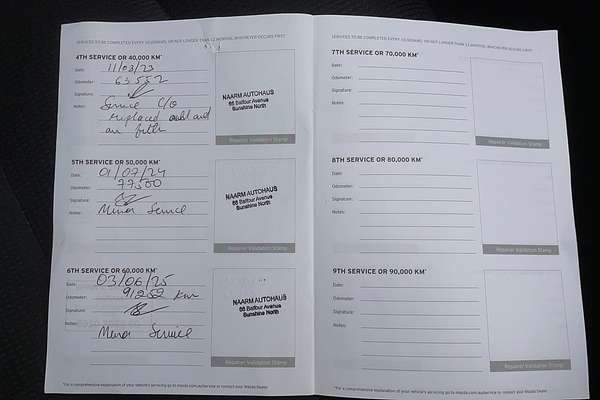 SERVICES TO BE COMPLETED EVERY 10,000KMS, OR NOT LONGER THAN 12 MONTHS, WHICHEVER OCCURS FIRST
4TH SERVICE OR 40,000 KM*
Date: 11/03/23
Odometer: 63552
Signature:
Notes: Service C/O
replaced and
air filter
NAARM AUTOHAUS
66 Balfour Avenue
Sunshine North
Repairer Validation Stamp
5TH SERVICE OR 50,000 KM*
Date: 01/07/24
Odometer: 77500
Signature:
Notes: Minor Service
NAARM AUTOHAUS
66 Balfour Avenue
Sunshine North
Repairer Validation Stamp
6TH SERVICE OR 60,000 KM*
Date: 03/06/25
Odometer: 91252 km
Signature:
Notes:
Minor Service
NAARM AUTOHAUS
66 Balfour Avenue
Sunshine North
Repairer Validation Stamp
*For a comprehensive explanation of your vehicle's servicing go to mazda.com.au/service or contact your Mazda Dealer
SERVICES TO BE COMPLETED EVERY 10,000KMS, OR NOT LONGER THAN 12 MONTHS, WHICHEVER OCCURS FIRST
7TH SERVICE OR 70,000 KM*
Date:
Odometer:
Signature:
Notes:
Repairer Validation Stamp
8TH SERVICE OR 80,000 KM*
Date:
Odometer:
Signature:
Notes:
Repairer Validation Stamp
9TH SERVICE OR 90,000 KM*
Date:
Odometer:
Signature:
Notes:
Repairer Validation Stamp
*For a comprehensive explanation of your vehicle's servicing go to mazda.com.au/service or contact your Mazda Dealer